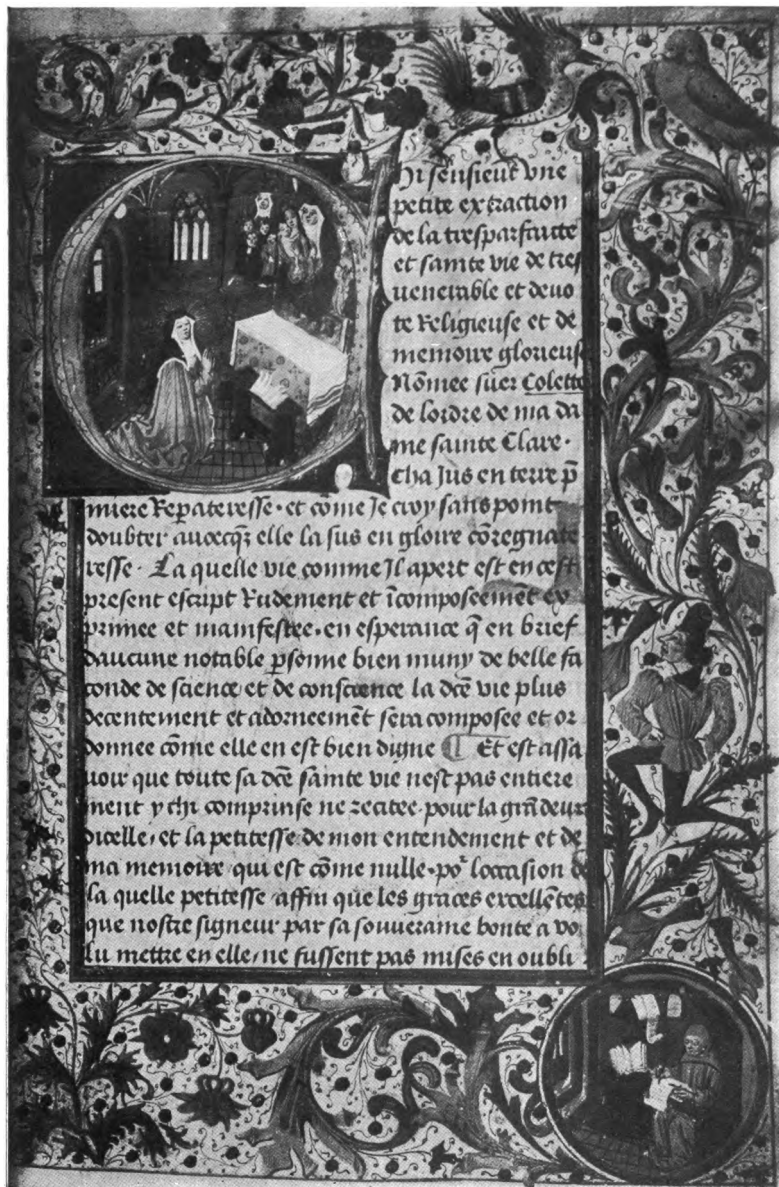 Chi sensieut vne
petite extraction
de la tresparfaitte
et sainte vie de tres
venerable et deuo
te Religieuse et de
memoire glorieuse
Nõmee suer Colette
de lordre de ma da
me sainte Clare.
Cha Jus en terre p̃
miere Reꝑateresse. et cõme Je croy sans point
doubter auecqꝫ elle la sus en gloire cõregnate
resse. La quelle vie comme Jl apert est en cest
present escript Rudement et ĩcomposeemẽt ex
primee et manifestee. en esperance q̃ en brief
daucune notable ꝑsonne bien muny de belle fa
conde de science et de conscience la dc̃e vie plus
decentement et adorneemẽt sera composee et or
donnee cõme elle en est bien digne ¶ Et est assa
uoir que toute sa dc̃e sainte vie nest pas entiere
ment y chi comprinse ne recitee. pour la grãdeur
dicelle, et la petitesse de mon entendement et de
ma memoire qui est cõme nulle. poʳ loccasion de
la quelle petitesse affin que les graces excellẽtes
que nostre signeur par sa souueraine bonte a vo
lu mettre en elle, ne fussent pas mises en oubli